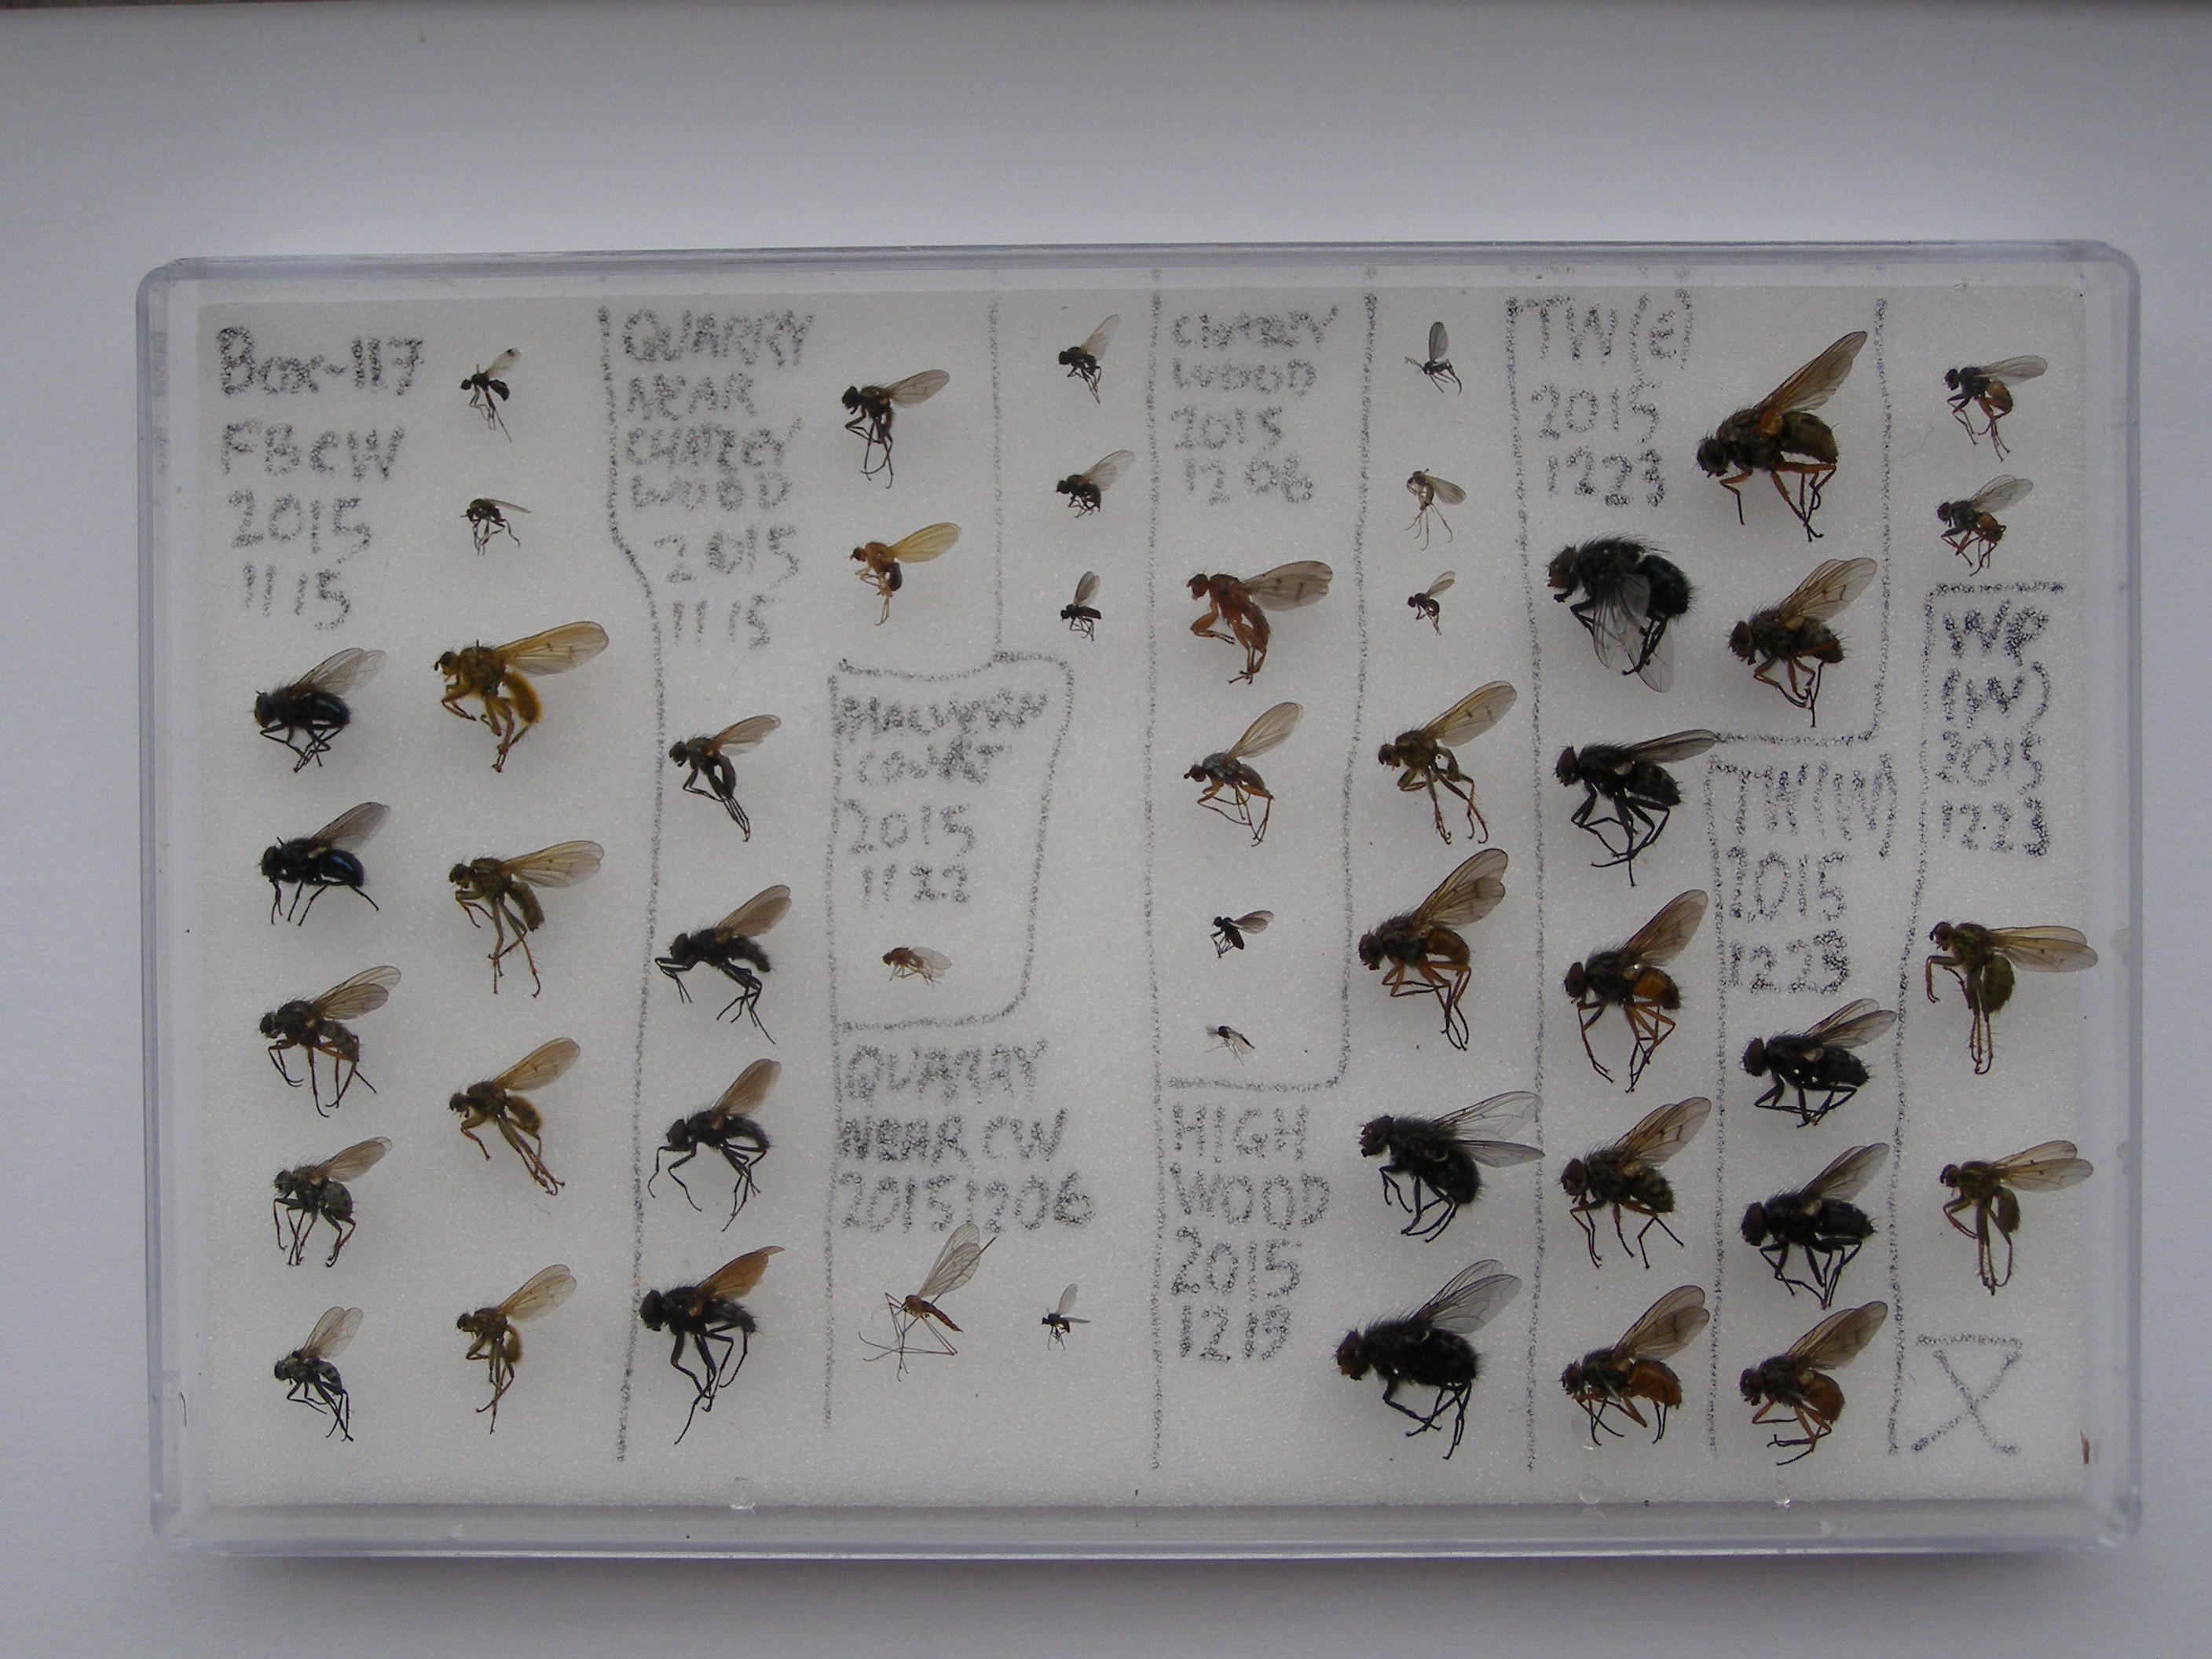 Box-117
FBCW
2015
11 15
QUARRY
NEAR
CHANTRY
WOOD
2015
11 15
MALVERN
COURT
2015
11 22
QUARRY
NEAR CW
20151206
CHANTRY
WOOD
2015
12 06
HIGH
WOOD
2015
12 13
TW/E
2015
1223
TW/LW
2015
1223
WP
2015
1223